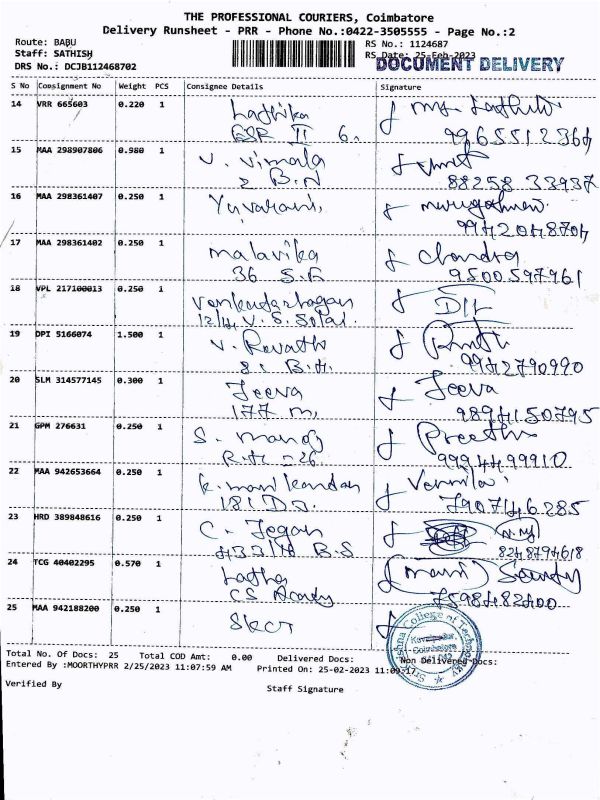 THE PROFESSIONAL COURIERS, Coimbatore
Delivery Runsheet - PRR - Phone No.:0422-3505555 - Page No.:2
Route: BABU
RS No.: 1124687
Staff: SATHISH
RS Date: 25-Feb-2023
DOCUMENT DELIVERY
DRS No.: DCJB112468702
S No Consignment No Weight PCS Consignee Details Signature
14 VRR 665603 0.220 1 Lathika
GSR II 6.
9965512364
15 MAA 298907806 0.980 1 V. Vimala
2 B.N
88258 33937
16 MAA 298361407 0.250 1 Yuvarani,
9942048704
17 MAA 298361402 0.250 1 Malavika Chandra
36 S.G 9500597961
18 VPL 217100013 0.250 1
12/4 V. S.
19 DPI 5166074 1.500 1 V. Revathi
8, B.H. 9942790990
20 SLM 314577145 0.300 1 Jeeva Jeeva
177 M. 9894150795
21 GPM 276631 0.250 1 S. Manoj Preethi
R.H - 26 9994499910
22 MAA 942653664 0.250 1 K. Manikandan
181 D.J. 7907146285
23 HRD 389848616 0.250 1 C. Jegan
433/4 B.S 8248794618
24 TCG 40402295 0.570 1 Latha (Mani)
CS 7598482400
25 MAA 942188200 0.250 1 SKCT
Sri Krishna College of Technology
Kovaipudur,
Coimbatore
641 042
Total No. Of Docs: 25 Total COD Amt: 0.00 Delivered Docs: Non Delivered Docs:
Entered By :MOORTHYPRR 2/25/2023 11:07:59 AM Printed On: 25-02-2023 11:09:17
Verified By
Staff Signature